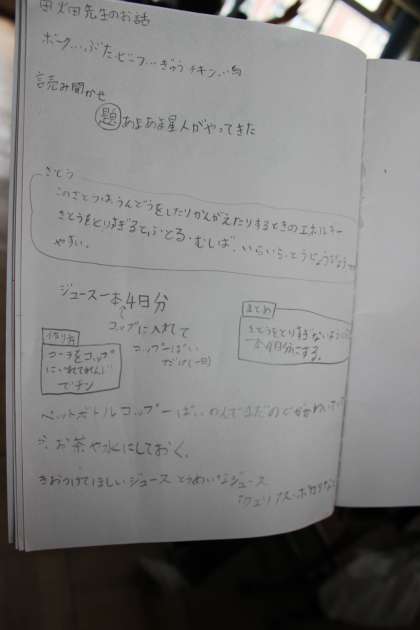 田畑先生のお話
ポーク…ぶた ビーフ…ぎゅう チキン…鳥
読み聞かせ
題 あまあま星人がやってきた
さとう
このさとうは、うんどうをしたりかんがえたりするときのエネルギー
さとうをとりすぎるとふとる・むしば、いらいら、とうにょうびょう
やすい。
ジュース一本4日分
コップに入れて
コップ一ぱい
だけ(一日)
まとめ
さとうをとりすぎないように
一本4日分にする。
作り方
コーラをコップ
に入れてれんじ
でチン
ペットボトルコップ一ぱいのんでまだのどがかわいて
※お茶や水にしておく。
きおつけてほしいジュース とうめいなジュース